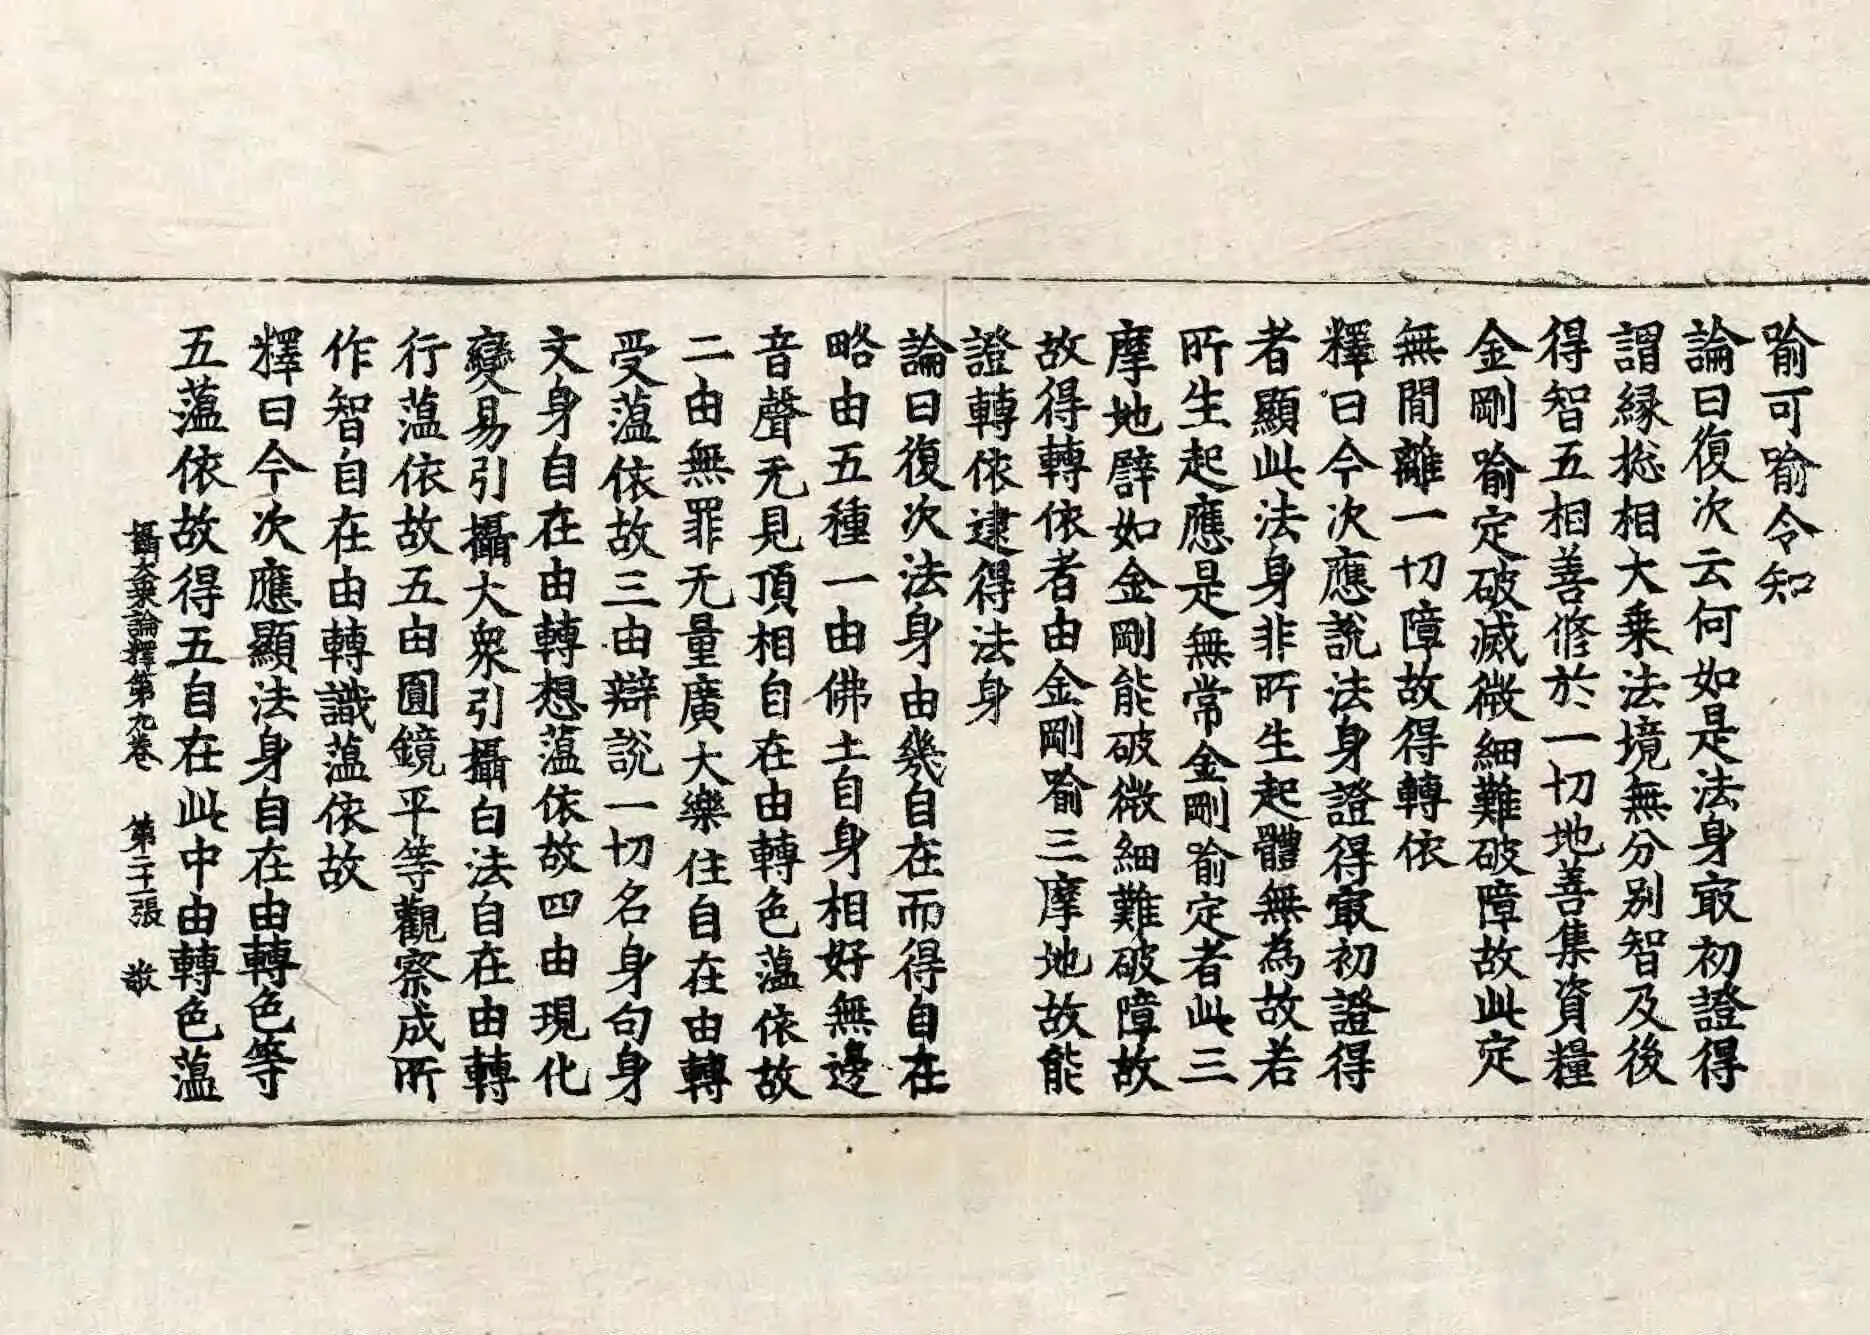 喻可喻令知
論曰復次云何如是法身㝡初證得
謂緣捴相大乗法境無分别智及後
得智五相善脩於一切地善集資糧
金剛喻定破滅微細難破障故此定
無間離一切障故得轉依
釋曰今次應說法身證得㝡初證得
者顯此法身非所生起體無為故若
所生起應是無常金剛喻定者此三
摩地譬如金剛能破微細難破障故
故得轉依者由金剛喻三摩地故能
證轉依逮得法身
論曰復次法身由幾自在而得自在
略由五種一由佛土自身相好無邊
音聲无見頂相自在由轉色薀依故
二由無罪无量廣大樂住自在由轉
受薀依故三由辯說一切名身句身
文身自在由轉想薀依故四由現化
變易引攝大衆引攝白法自在由轉
行薀依故五由圓鏡平等觀察成所
作智自在由轉識薀依故
釋曰今次應顯法身自在由轉色等
五薀依故得五自在此中由轉色薀
攝大乗論釋第九卷 第二十張 敬